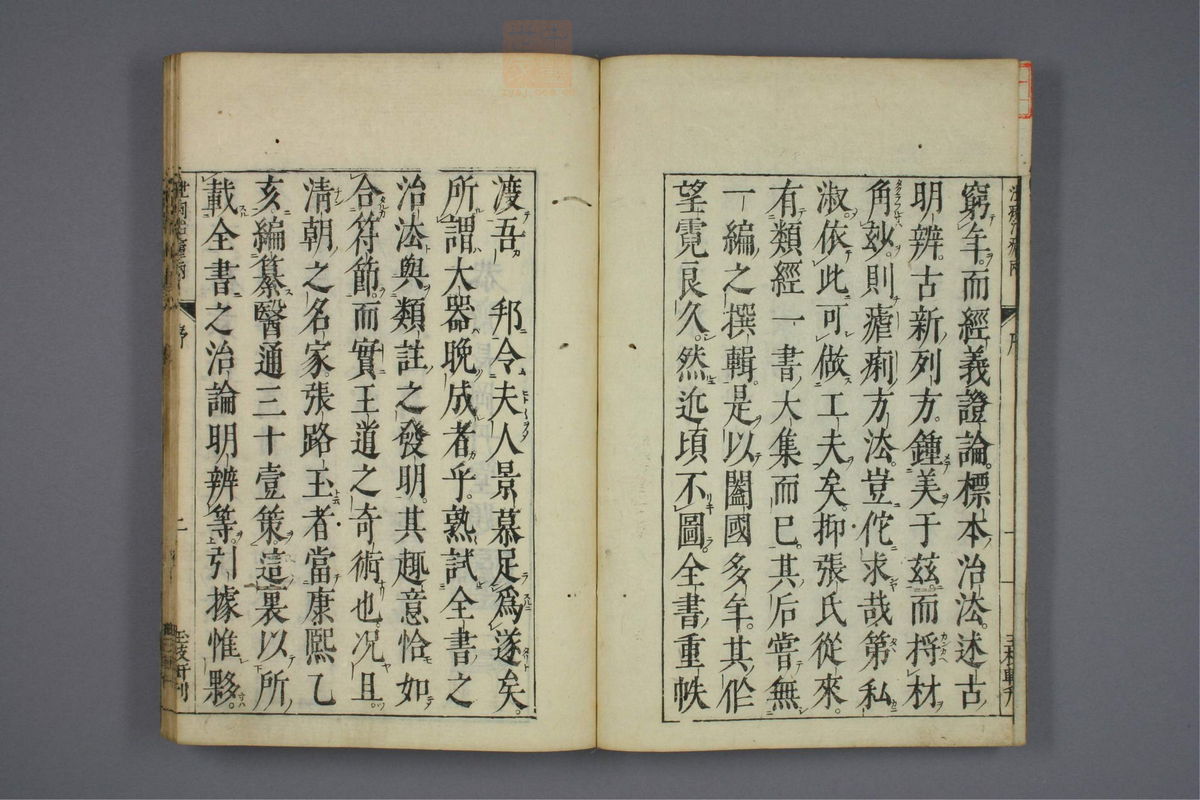 窮年而經義證論標本治法述古
明辨古新列方鍾美于玆而将材
角玅則瘧痢方法豈佗求哉第私
淑依此可做工夫矣抑張氏從來
有類經一書大集而已其后嘗無
一編之撰輯是以闔國多年其佀
望霓良久然近頃不圖全書重帙
渡吾 邦令夫人景慕足爲遂矣
所謂大器晚成者乎熟試全書之
治法與類註之發明其趣意恰如
合符節而實王道之奇術也况且
清朝之名家張路玉者當康熙乙
亥編纂醫通三十壹策這裏以所
載全書之治論明辨等引據惟夥
序
二